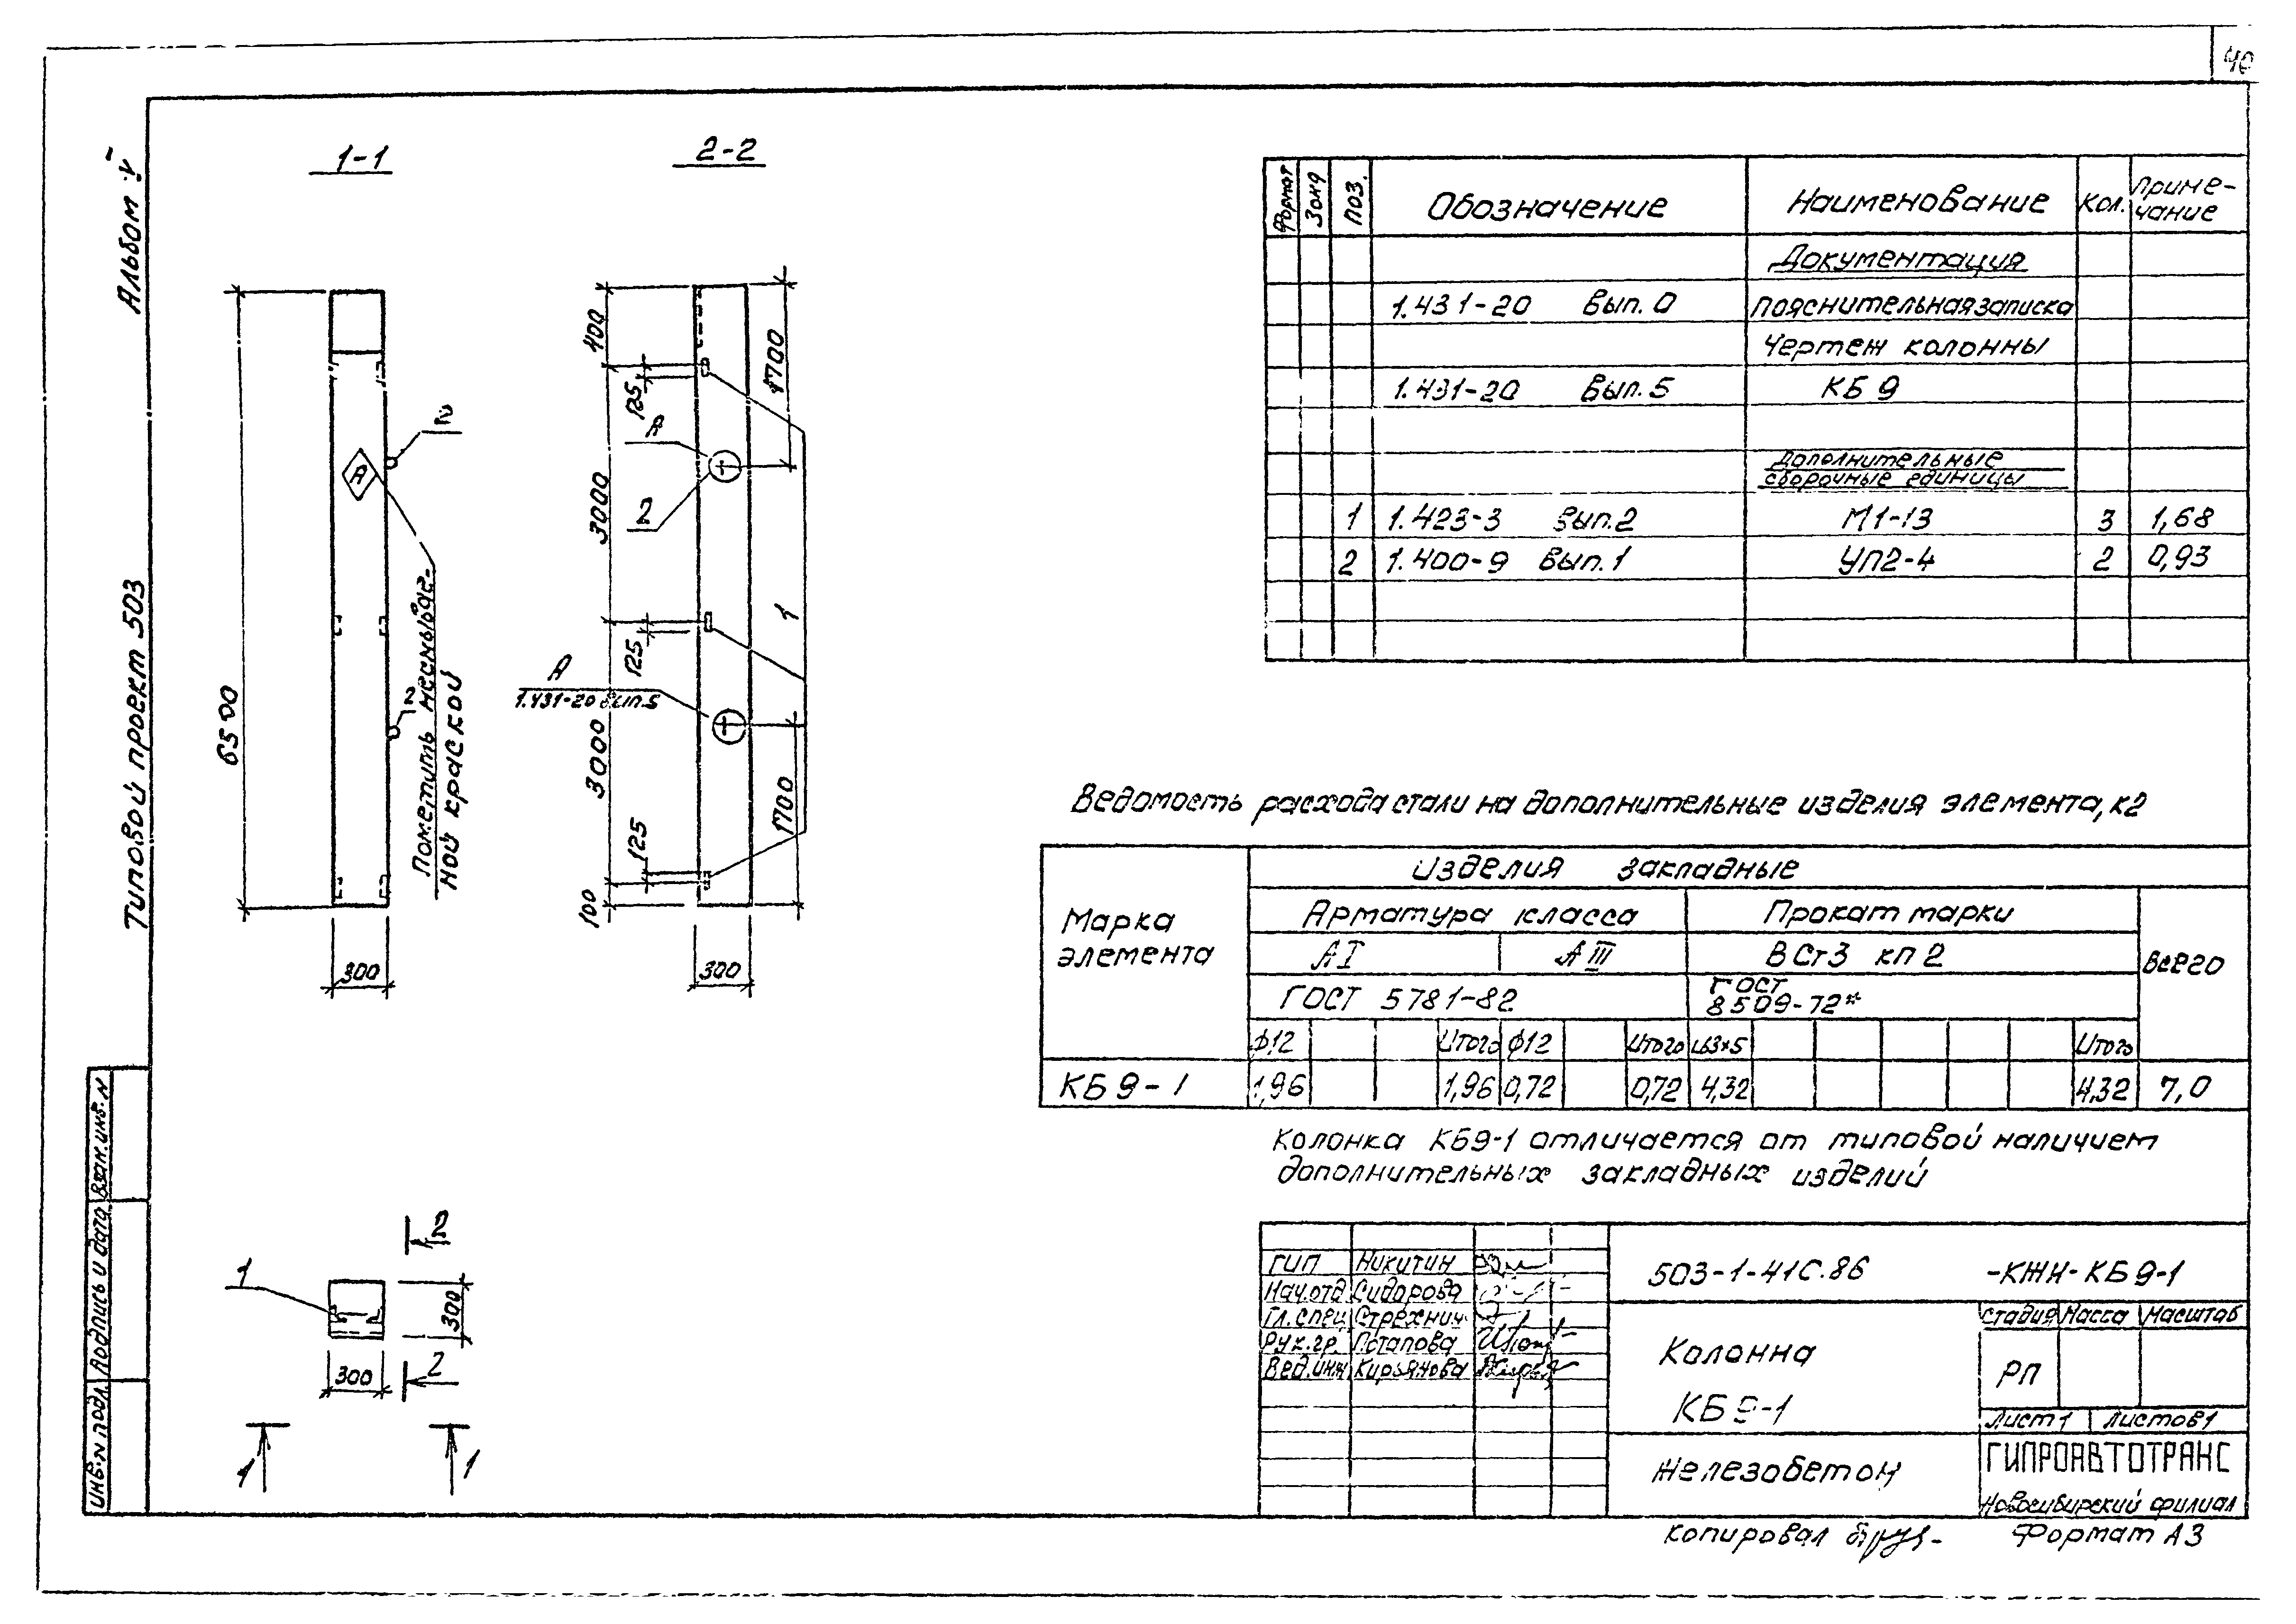 40
Альбом V
Типовой проект 503
1-1
2-2
6500
300
А
2
2
Пометить несмывае-
мой краской
400
125
3000
125
3000
125
100
1700
1700
300
А
2
А
1.431-20 вып.5
1
1
300
300
2
2
1
1
Формат
Зона
Поз.
Обозначение
Наименование
Кол.
Приме-
чание
Документация
1.431-20 Вып. 0 Пояснительная записка
Чертеж колонны
1.431-20 Вып. 5 КБ 9
Дополнительные
сборочные единицы
1 1.423-3 Вып.2 М1-13 3 1,68
2 1.400-9 Вып.1 УП2-4 2 0,93
Ведомость расхода стали на дополнительные изделия элемента, кг
Марка
элемента
Изделия закладные
Арматура класса
Прокат марки
Всего
АI
АIII
ВСт3 кп2
ГОСТ 5781-82
ГОСТ
8509-72*
ф12 Итого ф12 Итого L63×5 Итого
КБ9-1 1,96 1,96 0,72 0,72 4,32 4,32 7,0
Колонка КБ9-1 отличается от типовой наличием
дополнительных закладных изделий
ГИП Никитин
Нач.отд Сидорова
Гл.спец Стрехнин
Рук.гр. Потапова
Вед.инж Кирьянова
503-1-41С.86 -КЖИ-КБ9-1
Колонна
КБ9-1
Железобетон
Стадия Масса Масштаб
РП
Лист 1 Листов 1
ГИПРОАВТОТРАНС
Новосибирский филиал
Копировал
Формат А3
Инв.N подл.
Подпись и дата
Взам.инв.N